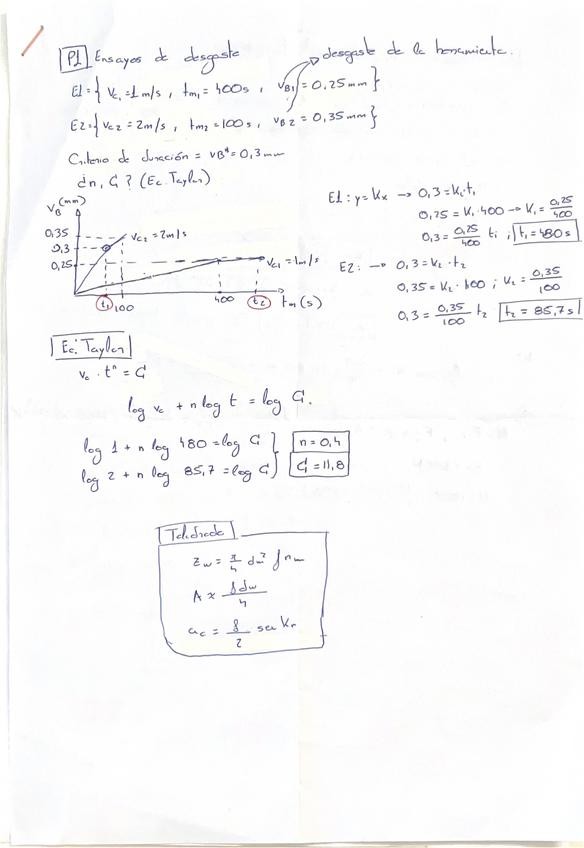 P1 Ensayos de desgaste
desgaste de la herramienta.
E1 = { Vc₁ = 1 m/s , tm₁ = 400s , VB1 = 0,25 mm }
E2 = { Vc2 = 2 m/s , tm2 = 100s , VB2 = 0,35 mm }
Criterio de duración = VB* = 0,3 mm
¿n, C? (Ec. Taylor)
VB (mm)
0,35
0,3
0,25
Vc2 = 2 m/s
Vc1 = 1 m/s
t₁ 100 400 t₂ tm (s)
E1: y = Kx → 0,3 = K₁·t₁
0,25 = K₁·400 → K₁ = 0,25/400
0,3 = 0,25/400 t₁ ; t₁ = 480 s
E2: → 0,3 = K₂·t₂
0,35 = K₂·100 ; K₂ = 0,35/100
0,3 = 0,35/100 t₂ t₂ = 85,7 s
Ec. Taylor
Vc · tⁿ = C
log Vc + n log t = log C.
log 1 + n log 480 = log C
log 2 + n log 85,7 = log C
n = 0,4
C = 11,8
Taladrado
Zw = π/4 dw² f nw
A ≈ f dw/4
ac = f/2 sen Kr